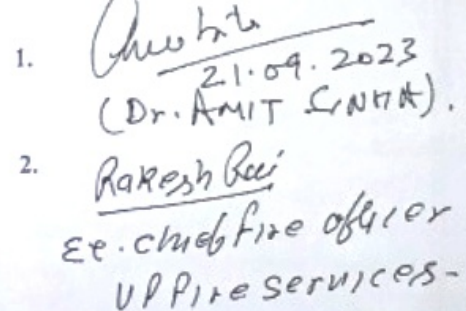 1.
21.09.2023
(Dr. AMIT SINHA).
2. Rakesh Rai
Ex. chief fire officer
UP Fire services-